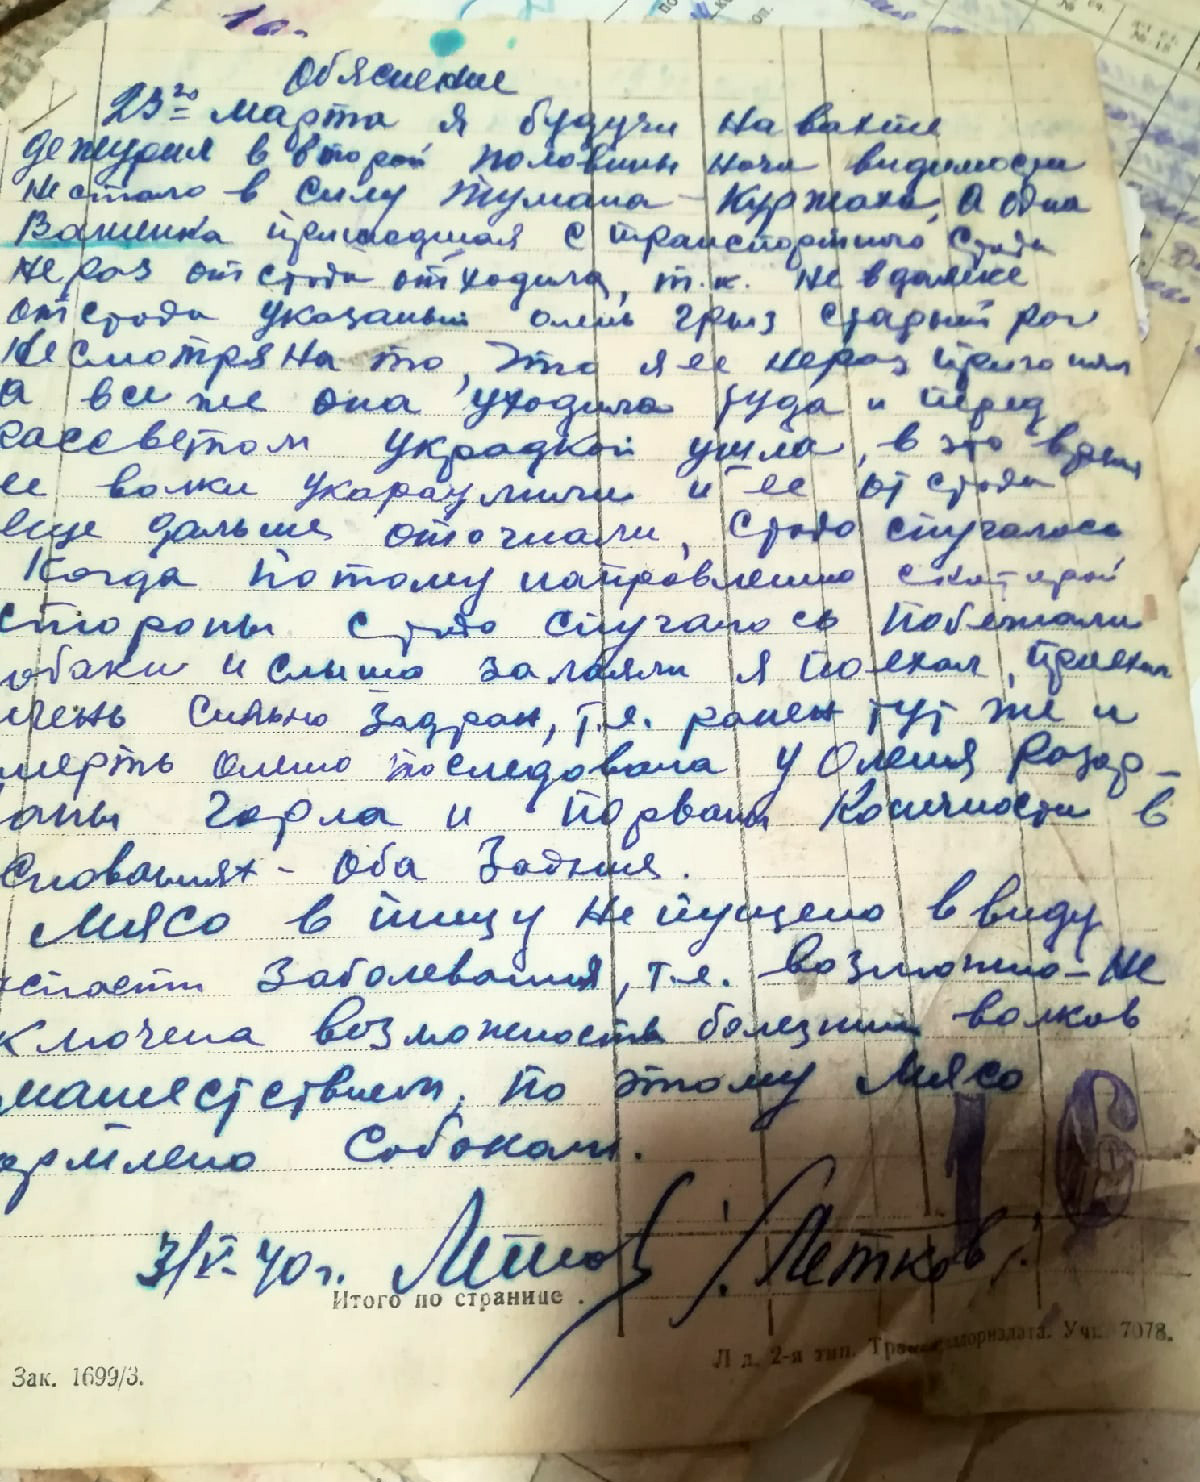 Обяснение
23го марта я будучи на вахте
дежурил в второй половины ночи видимости
не стало в силу тумана - Куржака, А одна
Важенка пришедшая с транспортного стада
не раз от стада отходила, т.к. не вдалеке
от стада указаный олень грыз старый рог
Несмотря на то, что я ее нераз пригонял
а все же она уходила туда и перед
рассветом украдкой ушла, в это время
ее волки укараулили и ее от стада
еще дальше отогнали, стадо стучалось
Когда потому направлению с которой
стороны стадо стучалось побежали
обаки и слышо залаяли я поехал, приехал
лень сильно задран, т.е. ранен тут же и
мерть оленю последовала у Оленя разар-
аны горла и порваны Конечности в
сновании - оба Задния.
Мясо в пищу не пущено ввиду
заболевания, т.е. возможно - не
ключена возможность болезни волков
машествием, по этому Мясо
армлено Собаками.
3/V-40г. /Летков/.
Итого по странице .
Зак. 1699/3.
Л д. 2-я тип. Уч. 7078.
16